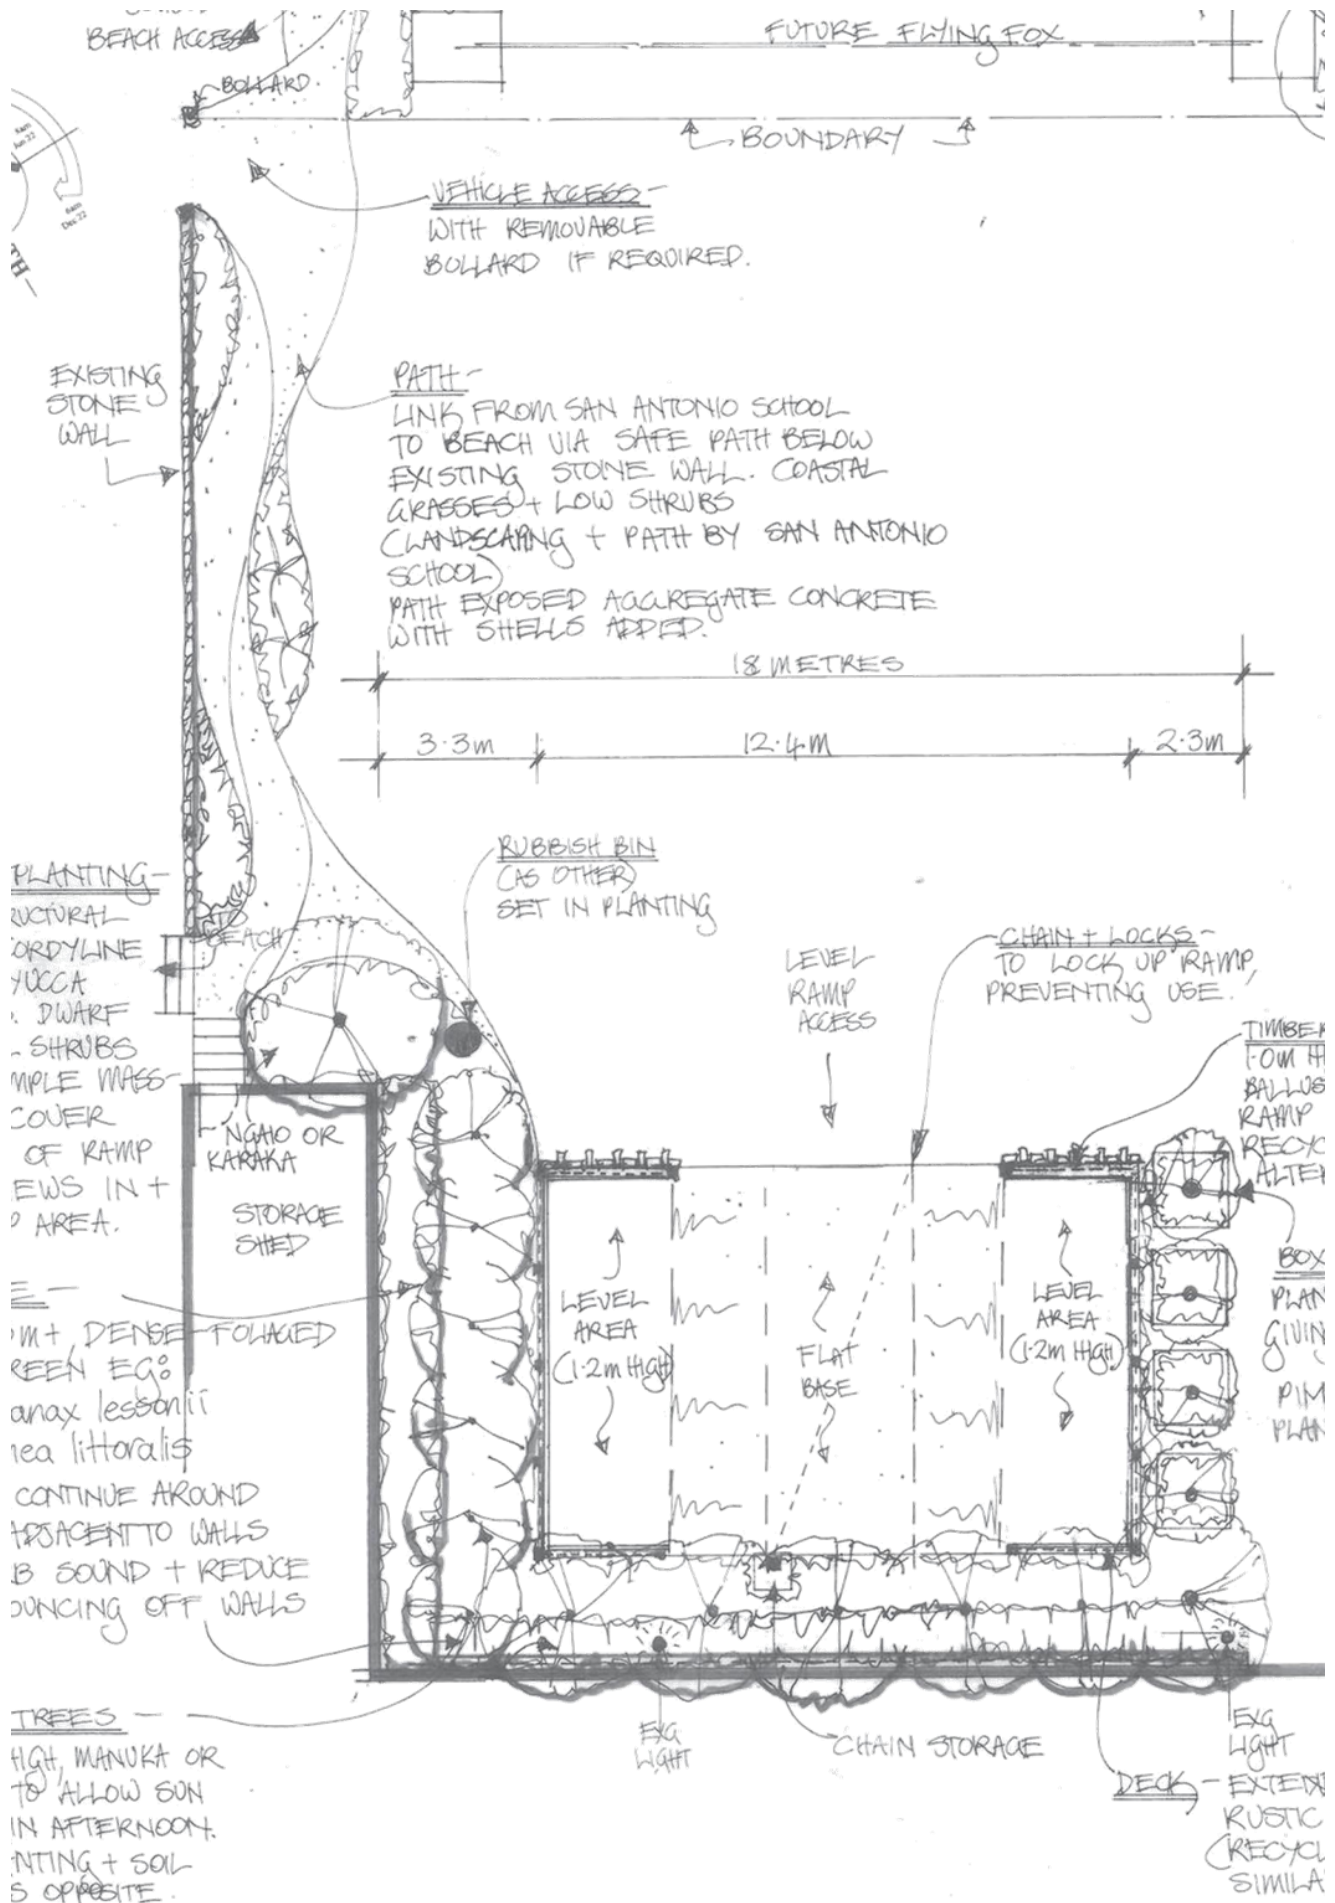 BEACH ACCESS
FUTURE FLYING FOX
BOLLARD
BOUNDARY
9am
Jun 22
9am
Dec 22
VEHICLE ACCESS -
WITH REMOVABLE
BOLLARD IF REQUIRED.
EXISTING
STONE
WALL
PATH -
LINK FROM SAN ANTONIO SCHOOL
TO BEACH VIA SAFE PATH BELOW
EXISTING STONE WALL. COASTAL
GRASSES + LOW SHRUBS
(LANDSCAPING + PATH BY SAN ANTONIO
SCHOOL)
PATH EXPOSED AGGREGATE CONCRETE
WITH SHELLS ADDED.
18 METRES
3.3m
12.4m
2.3m
RUBBISH BIN
(AS OTHER)
SET IN PLANTING
PLANTING -
RUCTURAL
ORDYLINE
YUCCA
. DWARF
SHRUBS
MPLE MASS-
COVER
OF RAMP
EWS IN +
AREA.
TO
BEACH
LEVEL
RAMP
ACCESS
CHAIN + LOCKS -
TO LOCK UP RAMP,
PREVENTING USE.
TIMBER
1.0m HI
BALLUS
RAMP
RECYC
ALTER
NGAIO OR
KARAKA
STORAGE
SHED
LEVEL
AREA
(1.2m HIGH)
FLAT
BASE
LEVEL
AREA
(1.2m HIGH)
BOX
PLAN
GIVIN
PIM
PLAN
E -
m+, DENSE-FOLIAGED
REEN EG:
anax lessonii
nea littoralis
CONTINUE AROUND
ADJACENT TO WALLS
B SOUND + REDUCE
OUNCING OFF WALLS
TREES -
HIGH, MANUKA OR
TO ALLOW SUN
IN AFTERNOON.
NTING + SOIL
S OPPOSITE.
EXG
LIGHT
CHAIN STORAGE
EXG
LIGHT
DECK - EXTEND
RUSTIC
(RECYCL
SIMILA